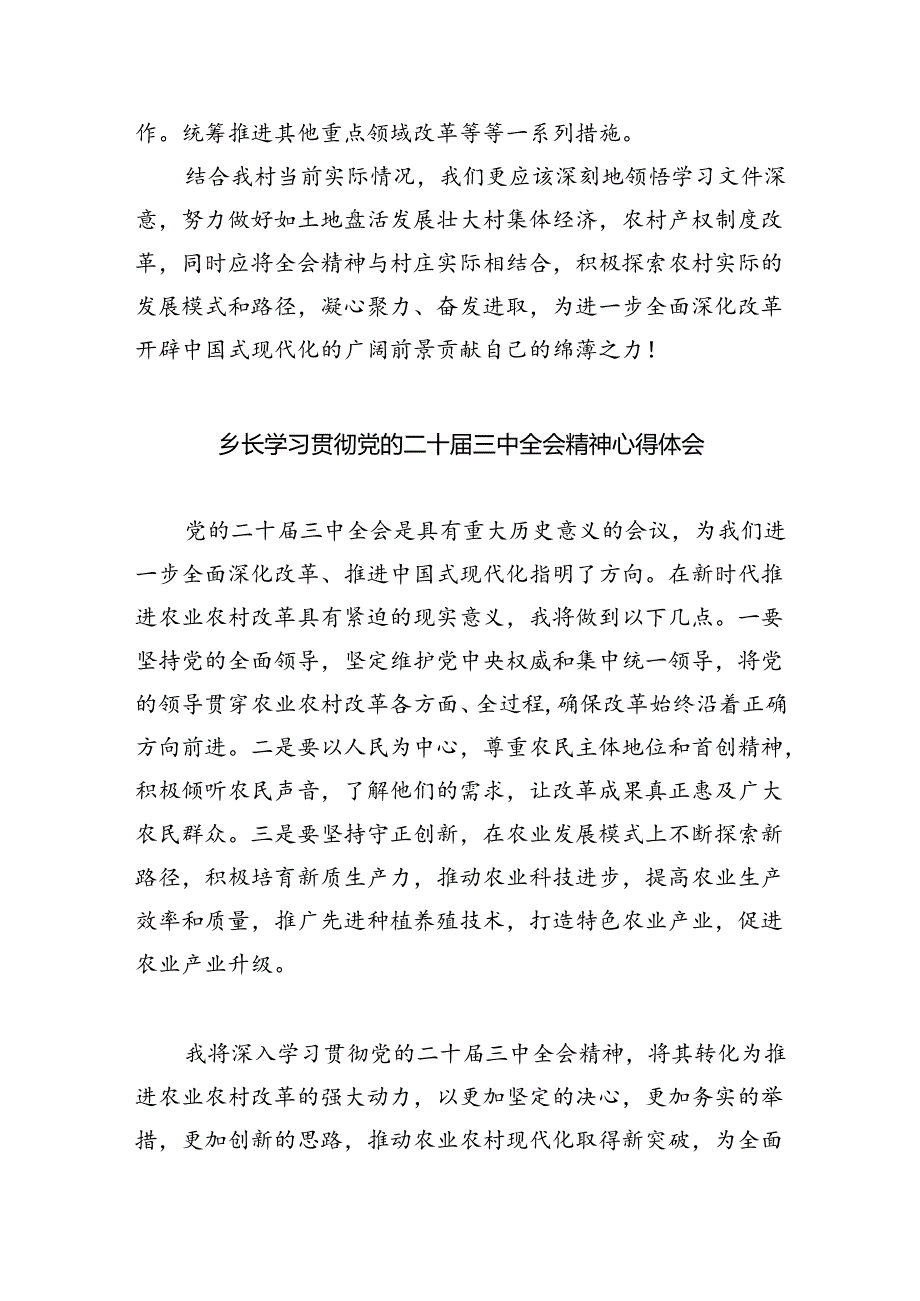 作。统筹推进其他重点领域改革等等一系列措施。
结合我村当前实际情况，我们更应该深刻地领悟学习文件深
意，努力做好如土地盘活发展壮大村集体经济，农村产权制度改
革，同时应将全会精神与村庄实际相结合，积极探索农村实际的
发展模式和路径，凝心聚力、奋发进取，为进一步全面深化改革
开辟中国式现代化的广阔前景贡献自己的绵薄之力！
乡长学习贯彻党的二十届三中全会精神心得体会
党的二十届三中全会是具有重大历史意义的会议，为我们进
一步全面深化改革、推进中国式现代化指明了方向。在新时代推
进农业农村改革具有紧迫的现实意义，我将做到以下几点。一要
坚持党的全面领导，坚定维护党中央权威和集中统一领导，将党
的领导贯穿农业农村改革各方面、全过程,确保改革始终沿着正确
方向前进。二是要以人民为中心，尊重农民主体地位和首创精神，
积极倾听农民声音，了解他们的需求，让改革成果真正惠及广大
农民群众。三是要坚持守正创新，在农业发展模式上不断探索新
路径，积极培育新质生产力，推动农业科技进步，提高农业生产
效率和质量，推广先进种植养殖技术，打造特色农业产业，促进
农业产业升级。
我将深入学习贯彻党的二十届三中全会精神，将其转化为推
进农业农村改革的强大动力，以更加坚定的决心，更加务实的举
措，更加创新的思路，推动农业农村现代化取得新突破，为全面